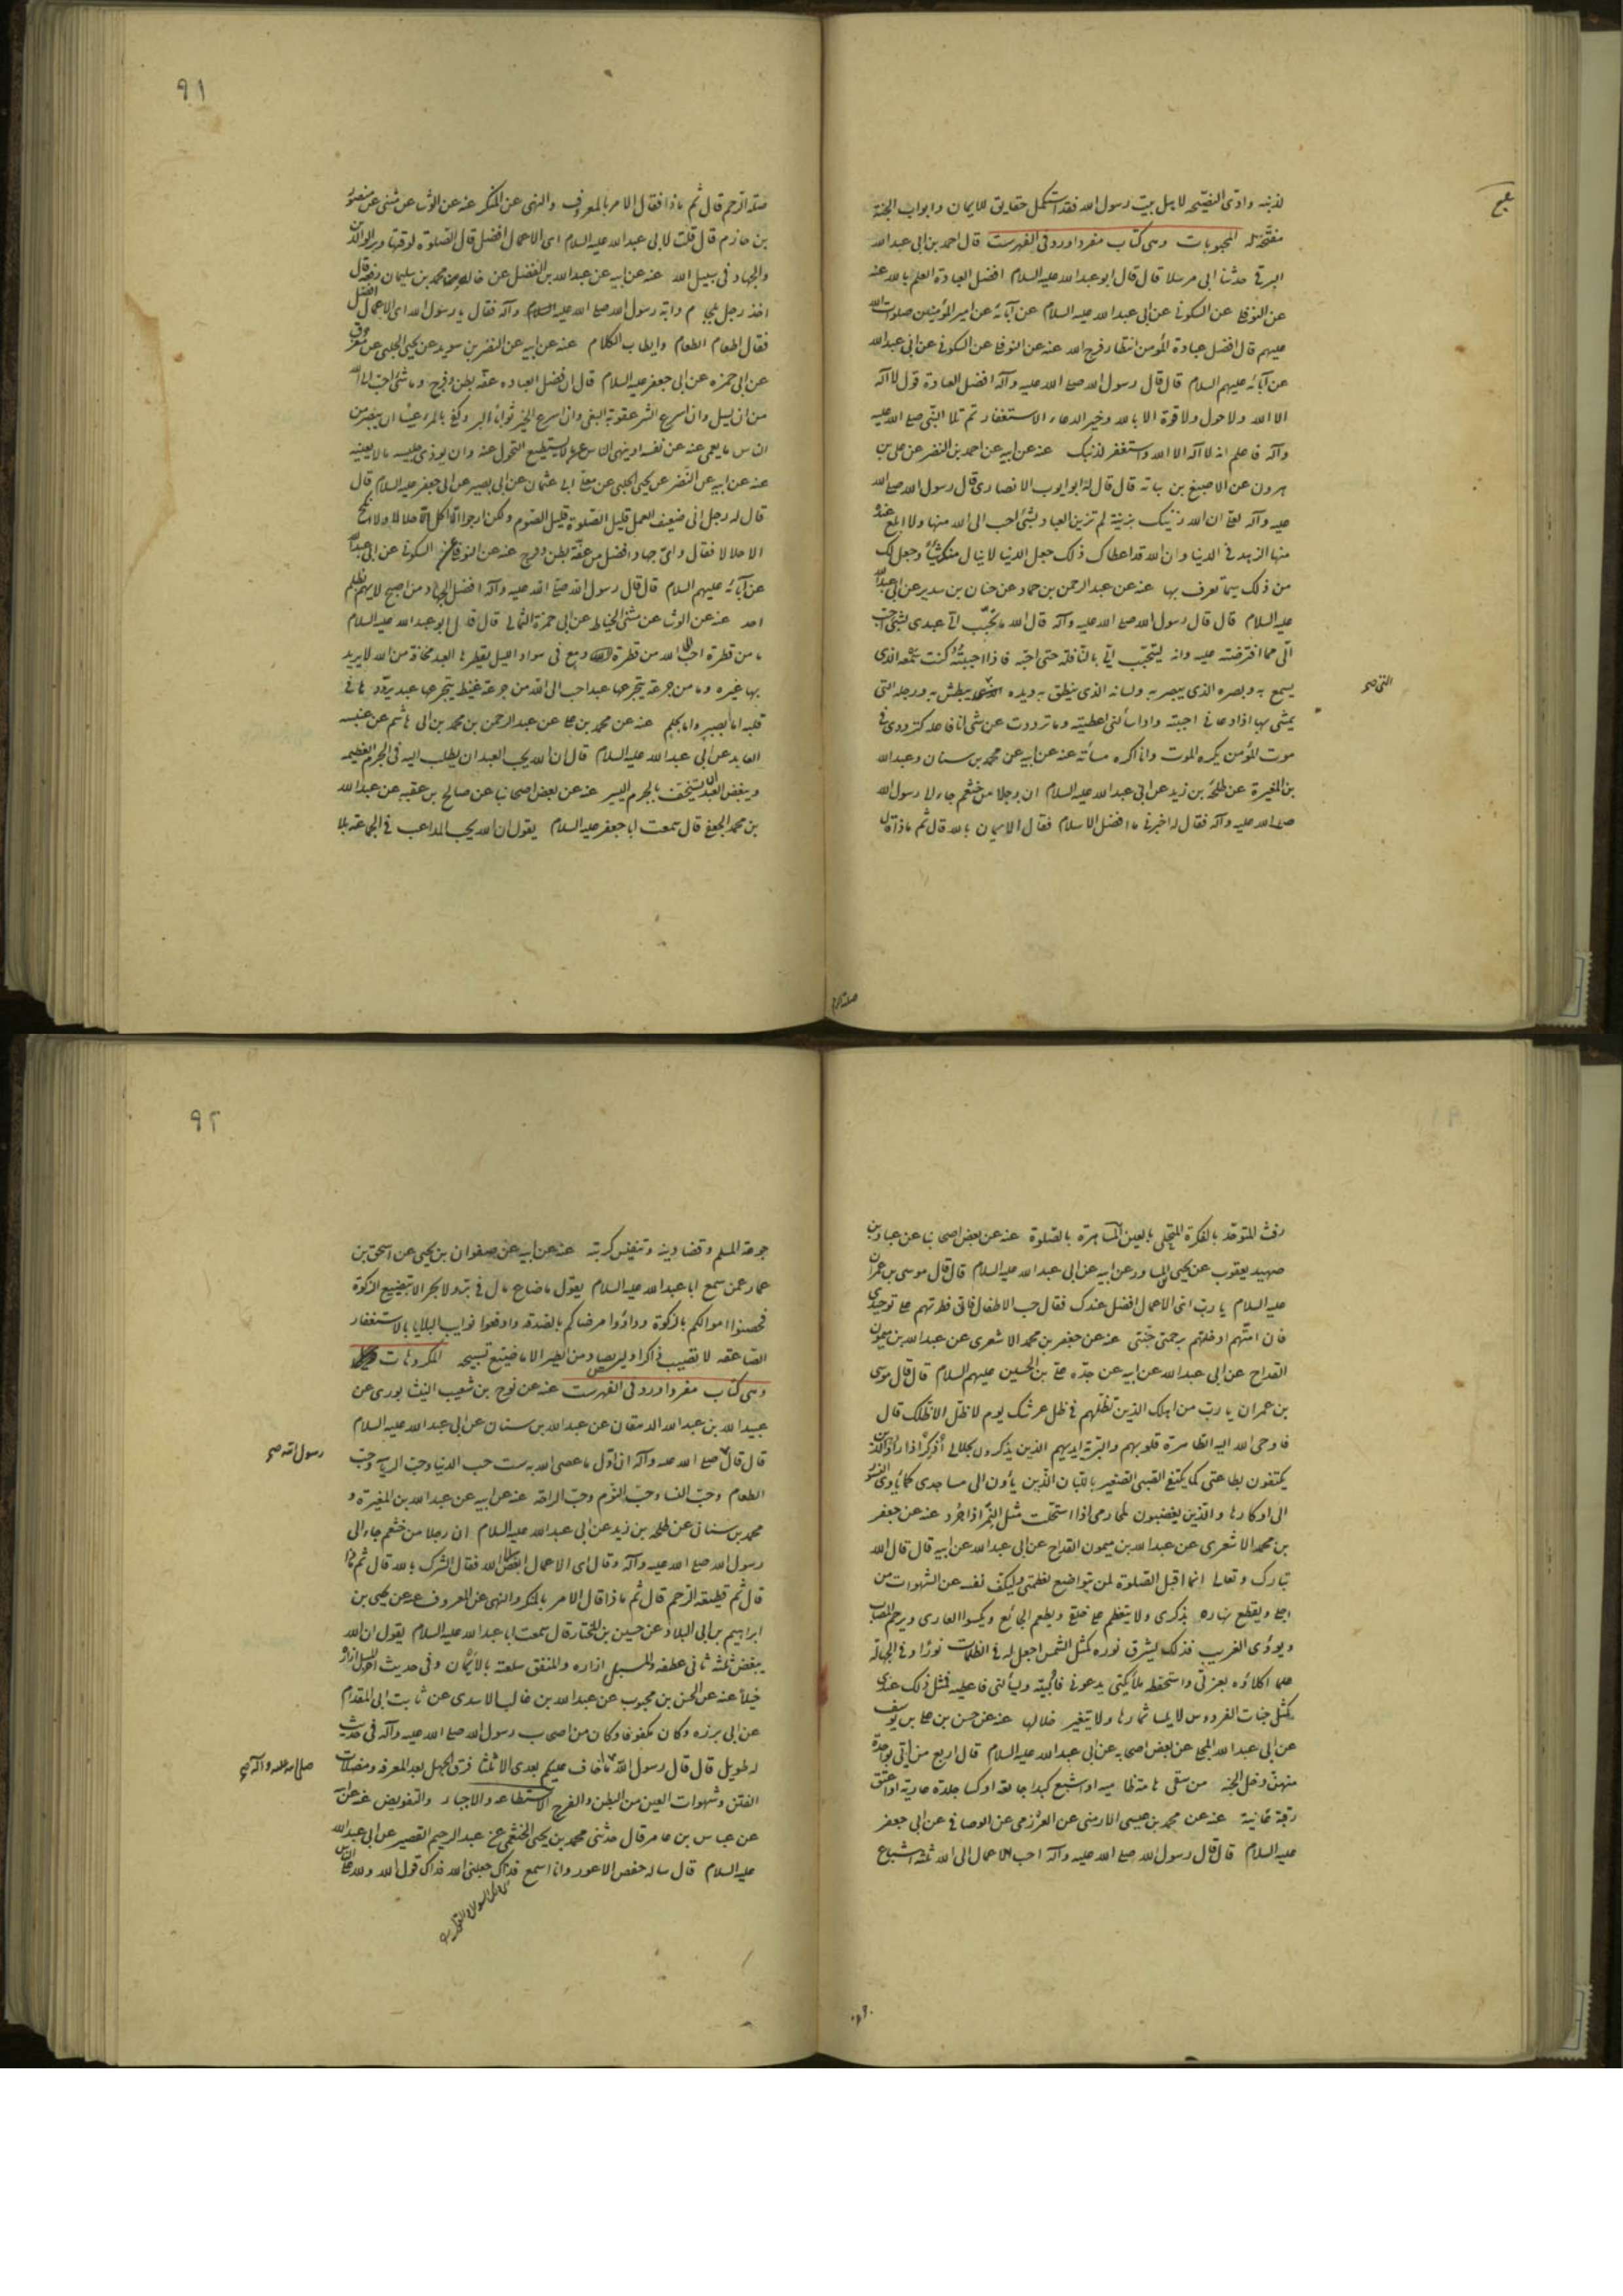 لذنبه وادى النصيحه لاهل بيت رسول الله فقد استكمل حقايق الايمان وابواب الجنة
مفتحة له المحبوبات وهى كتاب مفرد اورد فى الفهرست قال احمد بن ابى عبد الله
البرقى حدثنا ابى مرسلا قال قال ابو عبد الله عليه السلام افضل العبادة العلم بالله عنه
عن النوفلى عن السكونى عن ابى عبد الله عليه السلام عن آبائه عن امير المؤمنين صلوات الله
عليهم قال افضل عبادة المؤمن انتظار فرج الله عنه عن النوفلى عن السكونى عن ابى عبد الله
عن آبائه عليهم السلام قال قال رسول الله صلى الله عليه وآله افضل العبادة قول لا اله
الا الله ولا حول ولا قوة الا بالله وخير الدعاء الاستغفار ثم تلا النبى صلى الله عليه
وآله فاعلم انه لا اله الا الله واستغفر لذنبك عنه عن ابيه عن احمد بن النضر عن على بن
هرون عن الاصبغ بن نباته قال قال له ابو ايوب الانصارى قال رسول الله صلى الله
عليه وآله لعلى ان الله زينك بزينة لم تزين العباد بشئ احب الى الله منها ولا ابلغ عنده
منها الزهد فى الدنيا وان الله قد اعطاك ذلك جعل الدنيا لا ينال منك شيئا وجعل لك
من ذلك سيما تعرف بها عنه عن عبد الرحمن بن حماد عن حنان بن سدير عن ابى عبد الله
عليه السلام قال قال رسول الله صلى الله عليه وآله قال الله ما تحبب الى عبدى بشئ احب
الى مما افترضته عليه وانه ليتحبب الى بالنافلة حتى احبه فاذا احببته كنت سمعه الذى
يسمع به وبصره الذى يبصر به ولسانه الذى ينطق به ويده يبطش به ورجله التى
التى صح
يمشى بها اذا دعانى اجبته واذا سألنى اعطيته وما ترددت عن شئ انا فاعله كترددى فى
موت المؤمن يكره الموت وانا اكره مسائته عنه عن ابيه عن محمد بن سنان وعبد الله
بن المغيرة عن طلحة بن زيد عن ابى عبد الله عليه السلام ان رجلا من خثعم جاء الى رسول الله
صلى الله عليه وآله فقال له اخبرنى ما افضل الاسلام فقال الايمان بالله قال ثم ماذا قال
صلة الرحم
٩١
صلة الرحم قال ثم ماذا فقال الامر بالمعروف والنهى عن المنكر عنه عن الوشا عن مثنى عن منصور
بن حازم قال قلت لابى عبد الله عليه السلام اى الاعمال افضل قال الصلوة لوقتها وبر الوالدين
والجهاد فى سبيل الله عنه عن ابيه عن عبد الله بن الفضل عن خاله عن محمد بن سليمان رفعه قال
اخذ رجل بلجام دابة رسول الله صلى الله عليه وآله فقال يا رسول الله اى الاعمال افضل
فقال اطعام الطعام واطياب الكلام عنه عن ابيه عن النضر بن سويد عن يحيى الحلبى عن معلى
عن ابى حمزه عن ابى جعفر عليه السلام قال ان افضل العباده عفة بطن وفرج وما شئ احب الى الله
من ان يسئل وان اسرع الشر عقوبة البغى وان اسرع الخير ثوابا البر وكفى بالمرء عيبا ان يبصر من
الناس ما يعمى عنه عن نفسه او ينهى الناس عما لا يستطيع التحول عنه وان يوذى جليسه بما لا يعنيه
عنه عن ابيه عن النضر عن يحيى الحلبى عن معلى ابى عثمان عن ابى بصير عن ابى جعفر عليه السلام قال
قال له رجل انى ضعيف العمل قليل الصلوة قليل الصوم ولكن ارجو الا آكل الا حلالا ولا انكح
الا حلالا فقال واى جهاد افضل من عفة بطن وفرج عنه عن النوفلى عن السكونى عن ابى عبد الله
عن آبائه عليهم السلام قال قال رسول الله صلى الله عليه وآله افضل الجهاد من اصبح لا يهم بظلم
احد عنه عن الوشا عن مثنى الحناط عن ابى حمزة الثمالى قال قال ابو عبد الله عليه السلام
ما من قطرة احب الى الله من قطرة دمع فى سواد الليل يقطرها العبد مخافة من الله لا يريد
بها غيره وما من جرعة يتجرعها عبد احب الى الله من جرعة غيظ يتجرعها عبد يرددها فى
قلبه اما بصبر واما بحلم عنه عن محمد بن على عن عبد الرحمن بن محمد بن ابى هاشم عن عنبسه
العابد عن ابى عبد الله عليه السلام قال ان الله يحب العبد ان يطلب اليه فى الجرم العظيم
ويبغض العبد ان يستخف بالجرم اليسير عنه عن بعض اصحابنا عن صالح بن عقبه عن عبد الله
بن محمد الجعفى قال سمعت ابا جعفر عليه السلام يقول ان الله يحب المداعب فى الجماعة بلا
رفث المتوحد بالفكرة المتحلى بالعين الساهرة بالصلوة عنه عن بعض اصحابنا عن عباد بن
صهيب يعقوب عن يحيى المساور عن ابيه عن ابى عبد الله عليه السلام قال قال موسى بن عمران
عليه السلام يا رب اى الاعمال افضل عندك فقال حب الاطفال فانى فطرتهم على توحيدى
فان امتهم ادخلتهم برحمتى جنتى عنه عن جعفر بن محمد الاشعرى عن عبد الله بن ميمون
القداح عن ابى عبد الله عن ابيه عن جده على بن الحسين عليهم السلام قال قال موسى
بن عمران يا رب من اهلك الذين تظلهم فى ظل عرشك يوم لا ظل الا ظلك قال
فاوحى الله اليه الطاهرة قلوبهم والتربة ايديهم الذين يذكرون جلالى اذا ذكروا ربهم الذين
يكتفون بطاعتى كما يكتفى الصبى الصغير باللبان الذين يأوون الى مساجدى كما يأوى النسور
الى اوكارها والذين يغضبون لمحارمى اذا استحلت مثل النمر اذا حرد عنه عن جعفر
بن محمد الاشعرى عن عبد الله بن ميمون القداح عن ابى عبد الله عن ابيه قال قال الله
تبارك وتعالى انما اقبل الصلوة لمن يتواضع لعظمتى ويكف نفسه عن الشهوات من
اجلى ويقطع نهاره بذكرى ولا يتعظم على خلقى ويطعم الجائع ويكسوا العارى ويرحم المصاب
ويؤوى الغريب فذلك يشرق نوره كمثل الشمس اجعل له فى الظلمات نورا وفى الجهالة
حلما اكلاؤه بعزتى واستحفظه ملائكتى يدعونى فالبيه ويسألنى فاعطيه فمثل ذلك عندى
كمثل جنات الفردوس لا ييبس ثمارها ولا تتغير حالها عنه عن حسن بن على بن يوسف
عن ابى عبد الله البجلى عن بعض اصحابه عن ابى عبد الله عليه السلام قال اربع من اتى بواحدة
منهن دخل الجنه من سقى هامة ظاميه او اشبع كبدا جائعة او كسا جلدة عارية او اعتق
رقبة عانية عنه عن محمد بن عيسى الارمنى عن العرزمى عن الوصافى عن ابى جعفر
عليه السلام قال قال رسول الله صلى الله عليه وآله احب الاعمال الى الله ثلثة اشباع
٩٢
جوعة المسلم وقضاء دينه وتنفيس كربته عنه عن ابيه عن صفوان بن يحيى عن اسحق بن
عمار عمن سمع ابا عبد الله عليه السلام يقول ما ضاع مال فى بر ولا بحر الا بتضييع الزكوة
فحصنوا اموالكم بالزكوة وداووا مرضاكم بالصدقه وادفعوا نوايب البلايا بالاستغفار
الصاعقه لا تصيب ذاكرا وليس يصاد من الطير الا ما ضيع تسبيحه المكروهات
وهى كتاب مفرد اورد فى الفهرست عنه عن نوح بن شعيب النيشابورى عن
عبيد الله بن عبد الله الدهقان عن عبد الله بن سنان عن ابى عبد الله عليه السلام
قال قال صلى الله عليه وآله ان اول ما عصى الله به ست حب الدنيا وحب الرياسة وحب
رسول الله صح
الطعام وحب النساء وحب النوم وحب الراحة عنه عن ابيه عن عبد الله بن المغيرة و
محمد بن سنان عن طلحه بن زيد عن ابى عبد الله عليه السلام ان رجلا من خثعم جاء الى
رسول الله صلى الله عليه وآله وقال اى الاعمال ابغض الى الله فقال الشرك بالله قال ثم ماذا
قال ثم قطيعة الرحم قال ثم ماذا قال الامر بالمنكر والنهى عن المعروف عنه عن يحيى بن
ابراهيم بن ابى البلاد عن حسين بن المختار قال سمعت ابا عبد الله عليه السلام يقول ان الله
يبغض ثلثة ثانى عطفه والمسبل ازاره والمنفق سلعته بالأيمان وفى حديث آخر المسبل ازاره
خيلاء عنه عن الحسن بن محبوب عن عبد الله بن غالب الاسدى عن ثابت ابى المقدام
عن ابى برزه وكان مكفوفا وكان من اصحاب رسول الله صلى الله عليه وآله فى حديث
له طويل قال قال رسول الله ما اخاف عليكم بعدى الا ثلثا فرق الجهل بعد المعرفه ومضلات
صلى الله عليه وآله صح
الفتن وشهوات العين من البطن والفرج الاستطاعه والاجبار والتفويض عنه عن ابيه
عن عباس بن عامر قال حدثنى محمد بن يحيى الخثعمى عن عبد الرحيم القصير عن ابى عبد الله
عليه السلام قال ساله حفص الاعور وانا اسمع فداك جعلنى الله فداك قول الله ولله على الناس